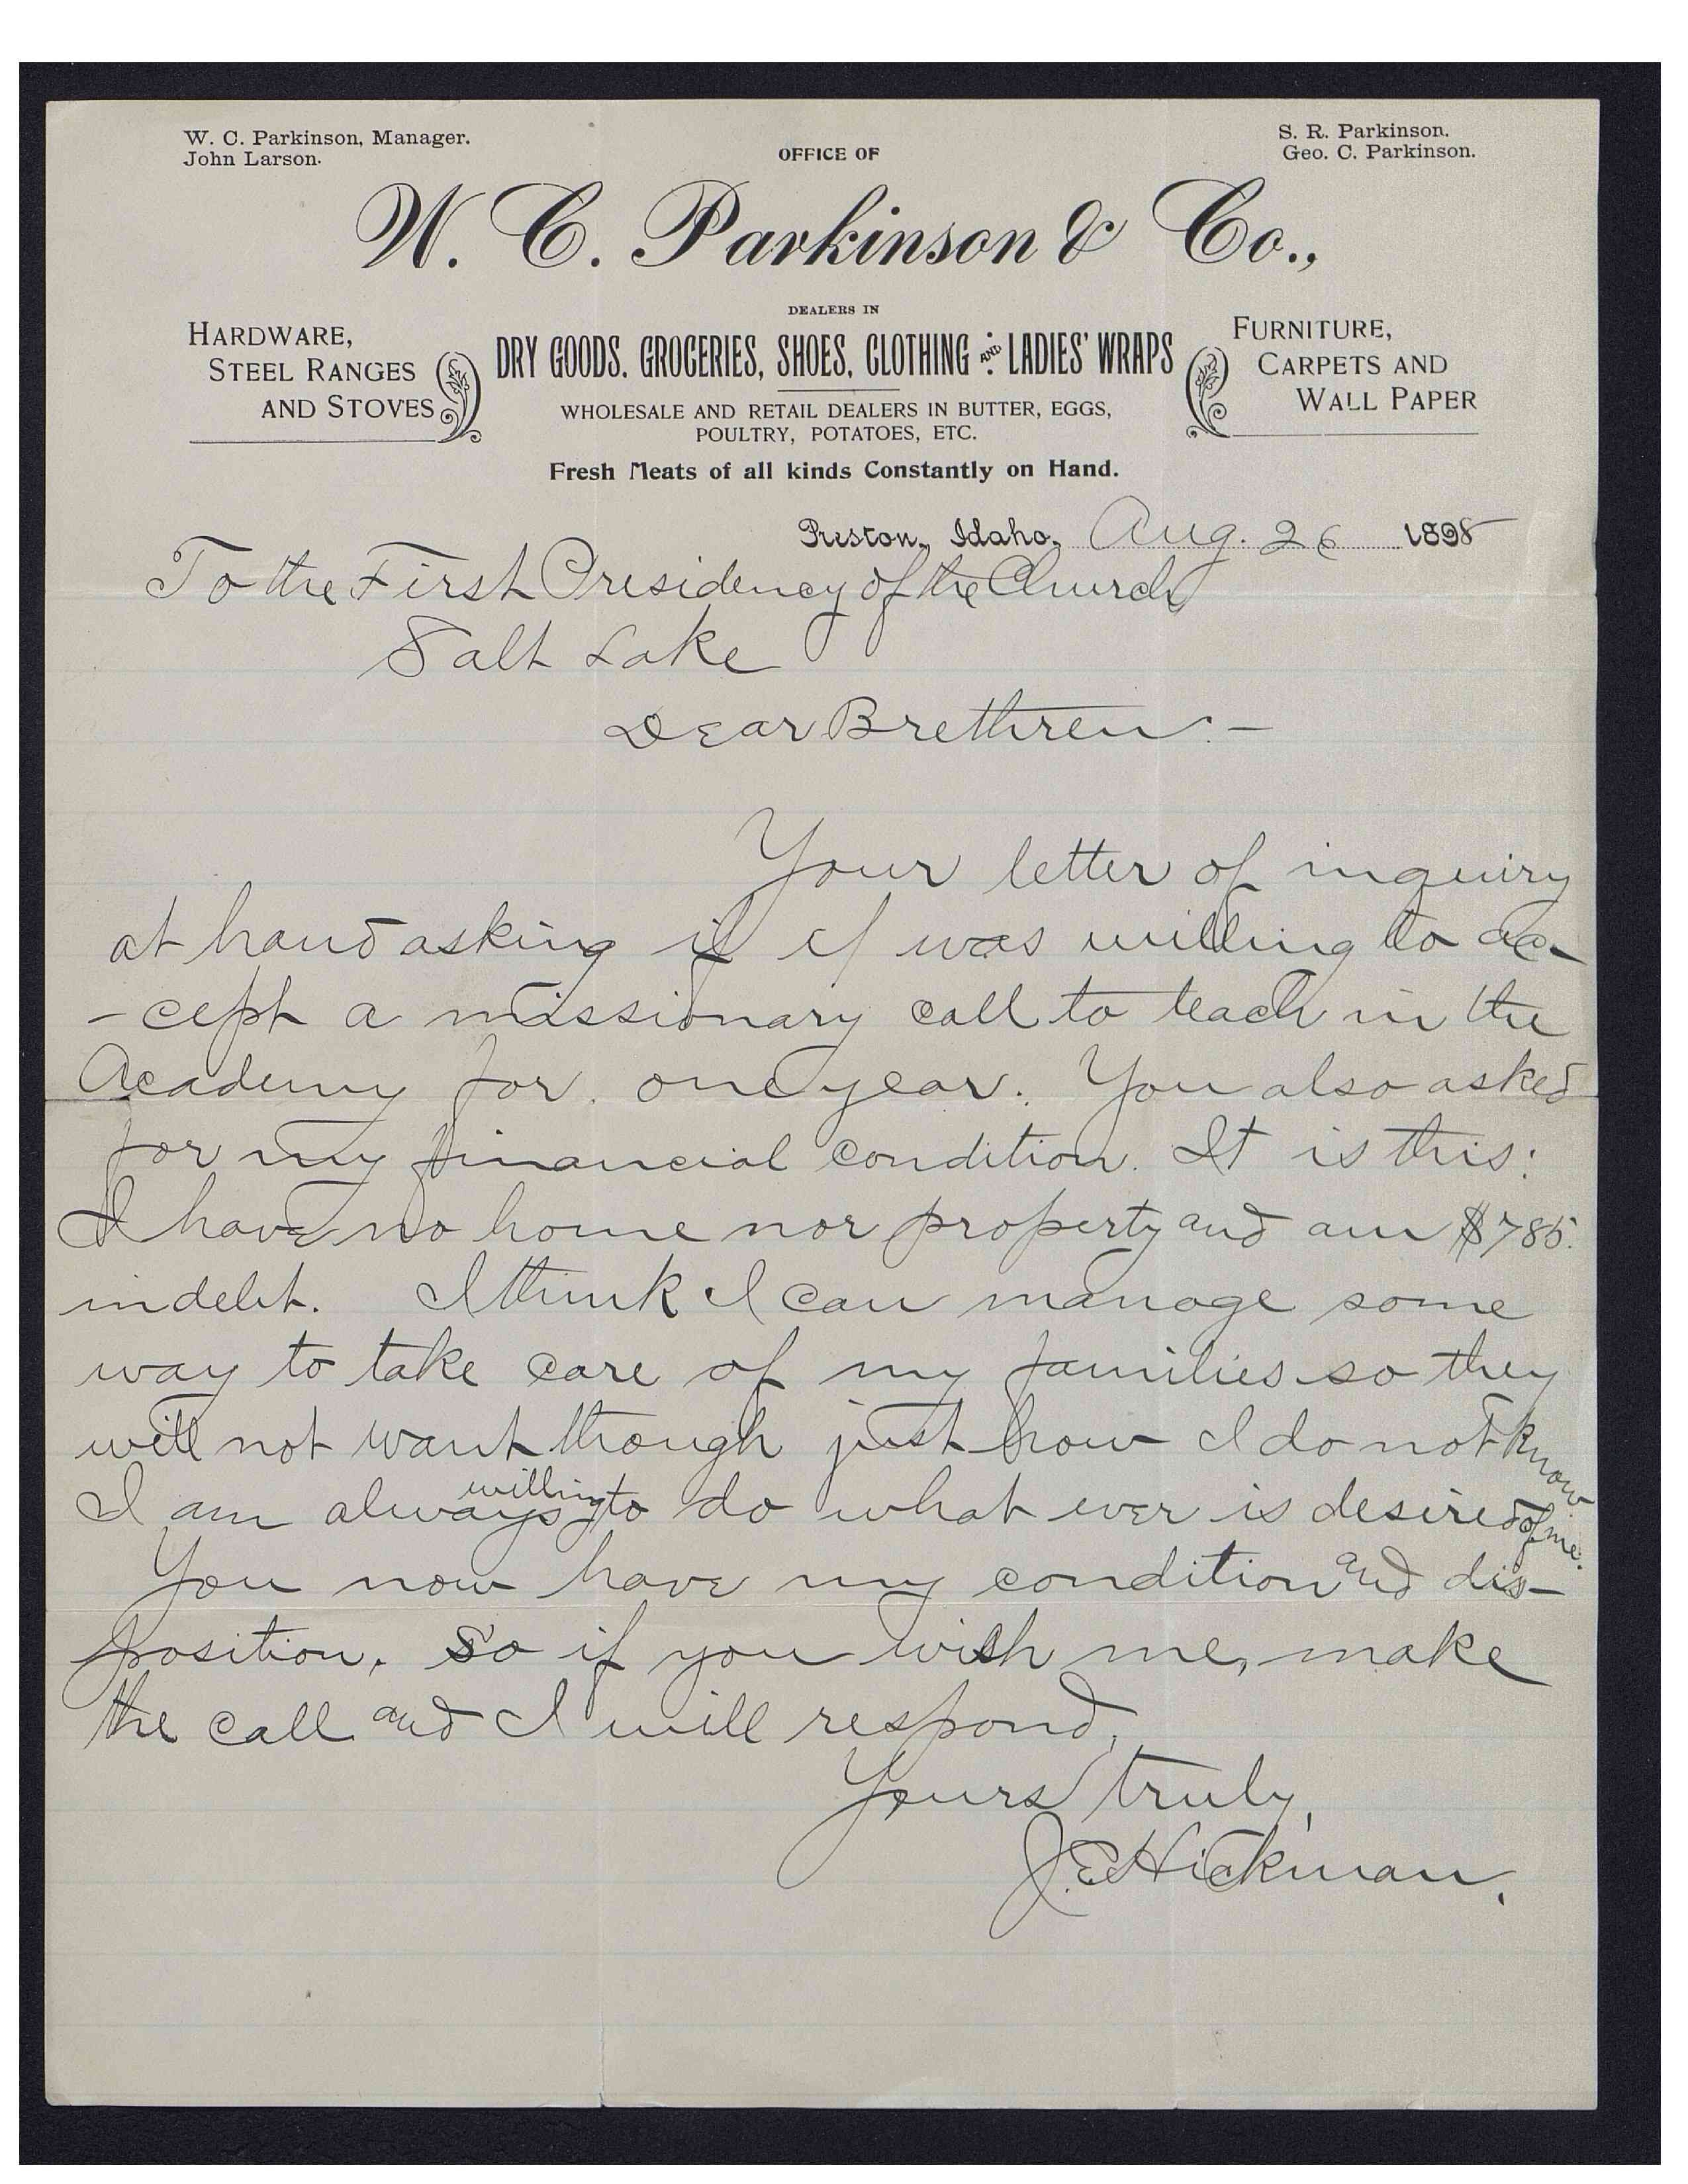 W. C. Parkinson, Manager.
John Larson.
OFFICE OF
S. R. Parkinson.
Geo. C. Parkinson.
W. C. Parkinson & Co.,
DEALERS IN
HARDWARE,
STEEL RANGES
AND STOVES
DRY GOODS, GROCERIES, SHOES, CLOTHING AND LADIES' WRAPS
WHOLESALE AND RETAIL DEALERS IN BUTTER, EGGS,
POULTRY, POTATOES, ETC.
Fresh Meats of all kinds Constantly on Hand.
FURNITURE,
CARPETS AND
WALL PAPER
Preston, Idaho, Aug. 26 1898
To the First Presidency of the Church
Salt Lake
Dear Brethren:-
Your letter of inquiry
at hand asking if I was willing to ac-
-cept a missionary call to teach in the
Academy for one year. You also asked
for my financial condition. It is this:
I have no home nor property and am $785.
in debt. I think I can manage some
way to take care of my families so they
will not want though just how I do not know
I am always willing to do what ever is desired of me.
You now have my condition and dis-
position. So if you wish me, make
the call and I will respond.
Yours truly,
J. E. Hickman.